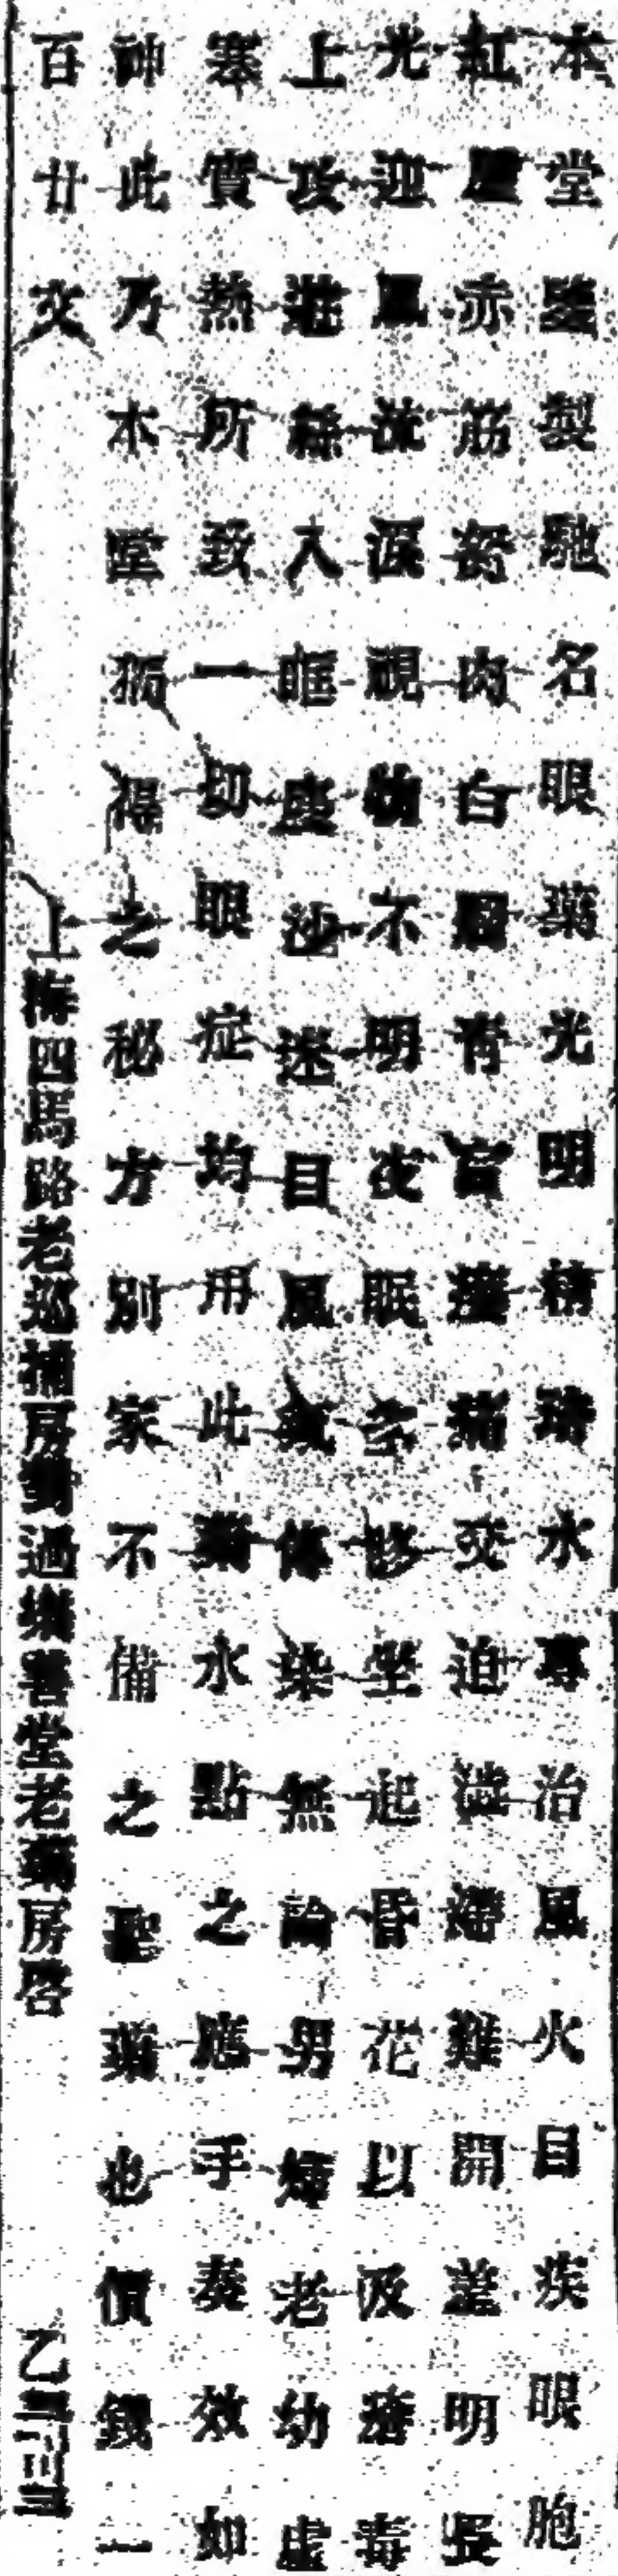 本堂監製馳名眼藥光明精琦水專治風火目疾眼胞
紅腫赤筋努肉白翳青盲癢痛交迫澁滯難開羞明畏
光迎風流淚視物不明夜眠多眵坐起昏花以及瘡毒
上攻遊絲入眶塵沙迷目風氣傳染無論男婦老幼虛
寒實熱所致一切眼症均用此藥水點之應手奏效如
神此乃本堂獨得之秘方別家不備之聖藥也價錢一
百廿文
上海四馬路老巡捕房對過樂善堂老藥房啓
乙